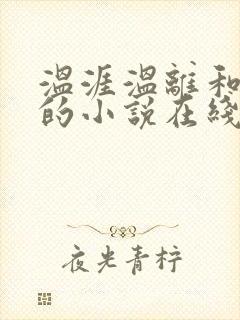 温涯温離和
的小説在綫
夜光青柠